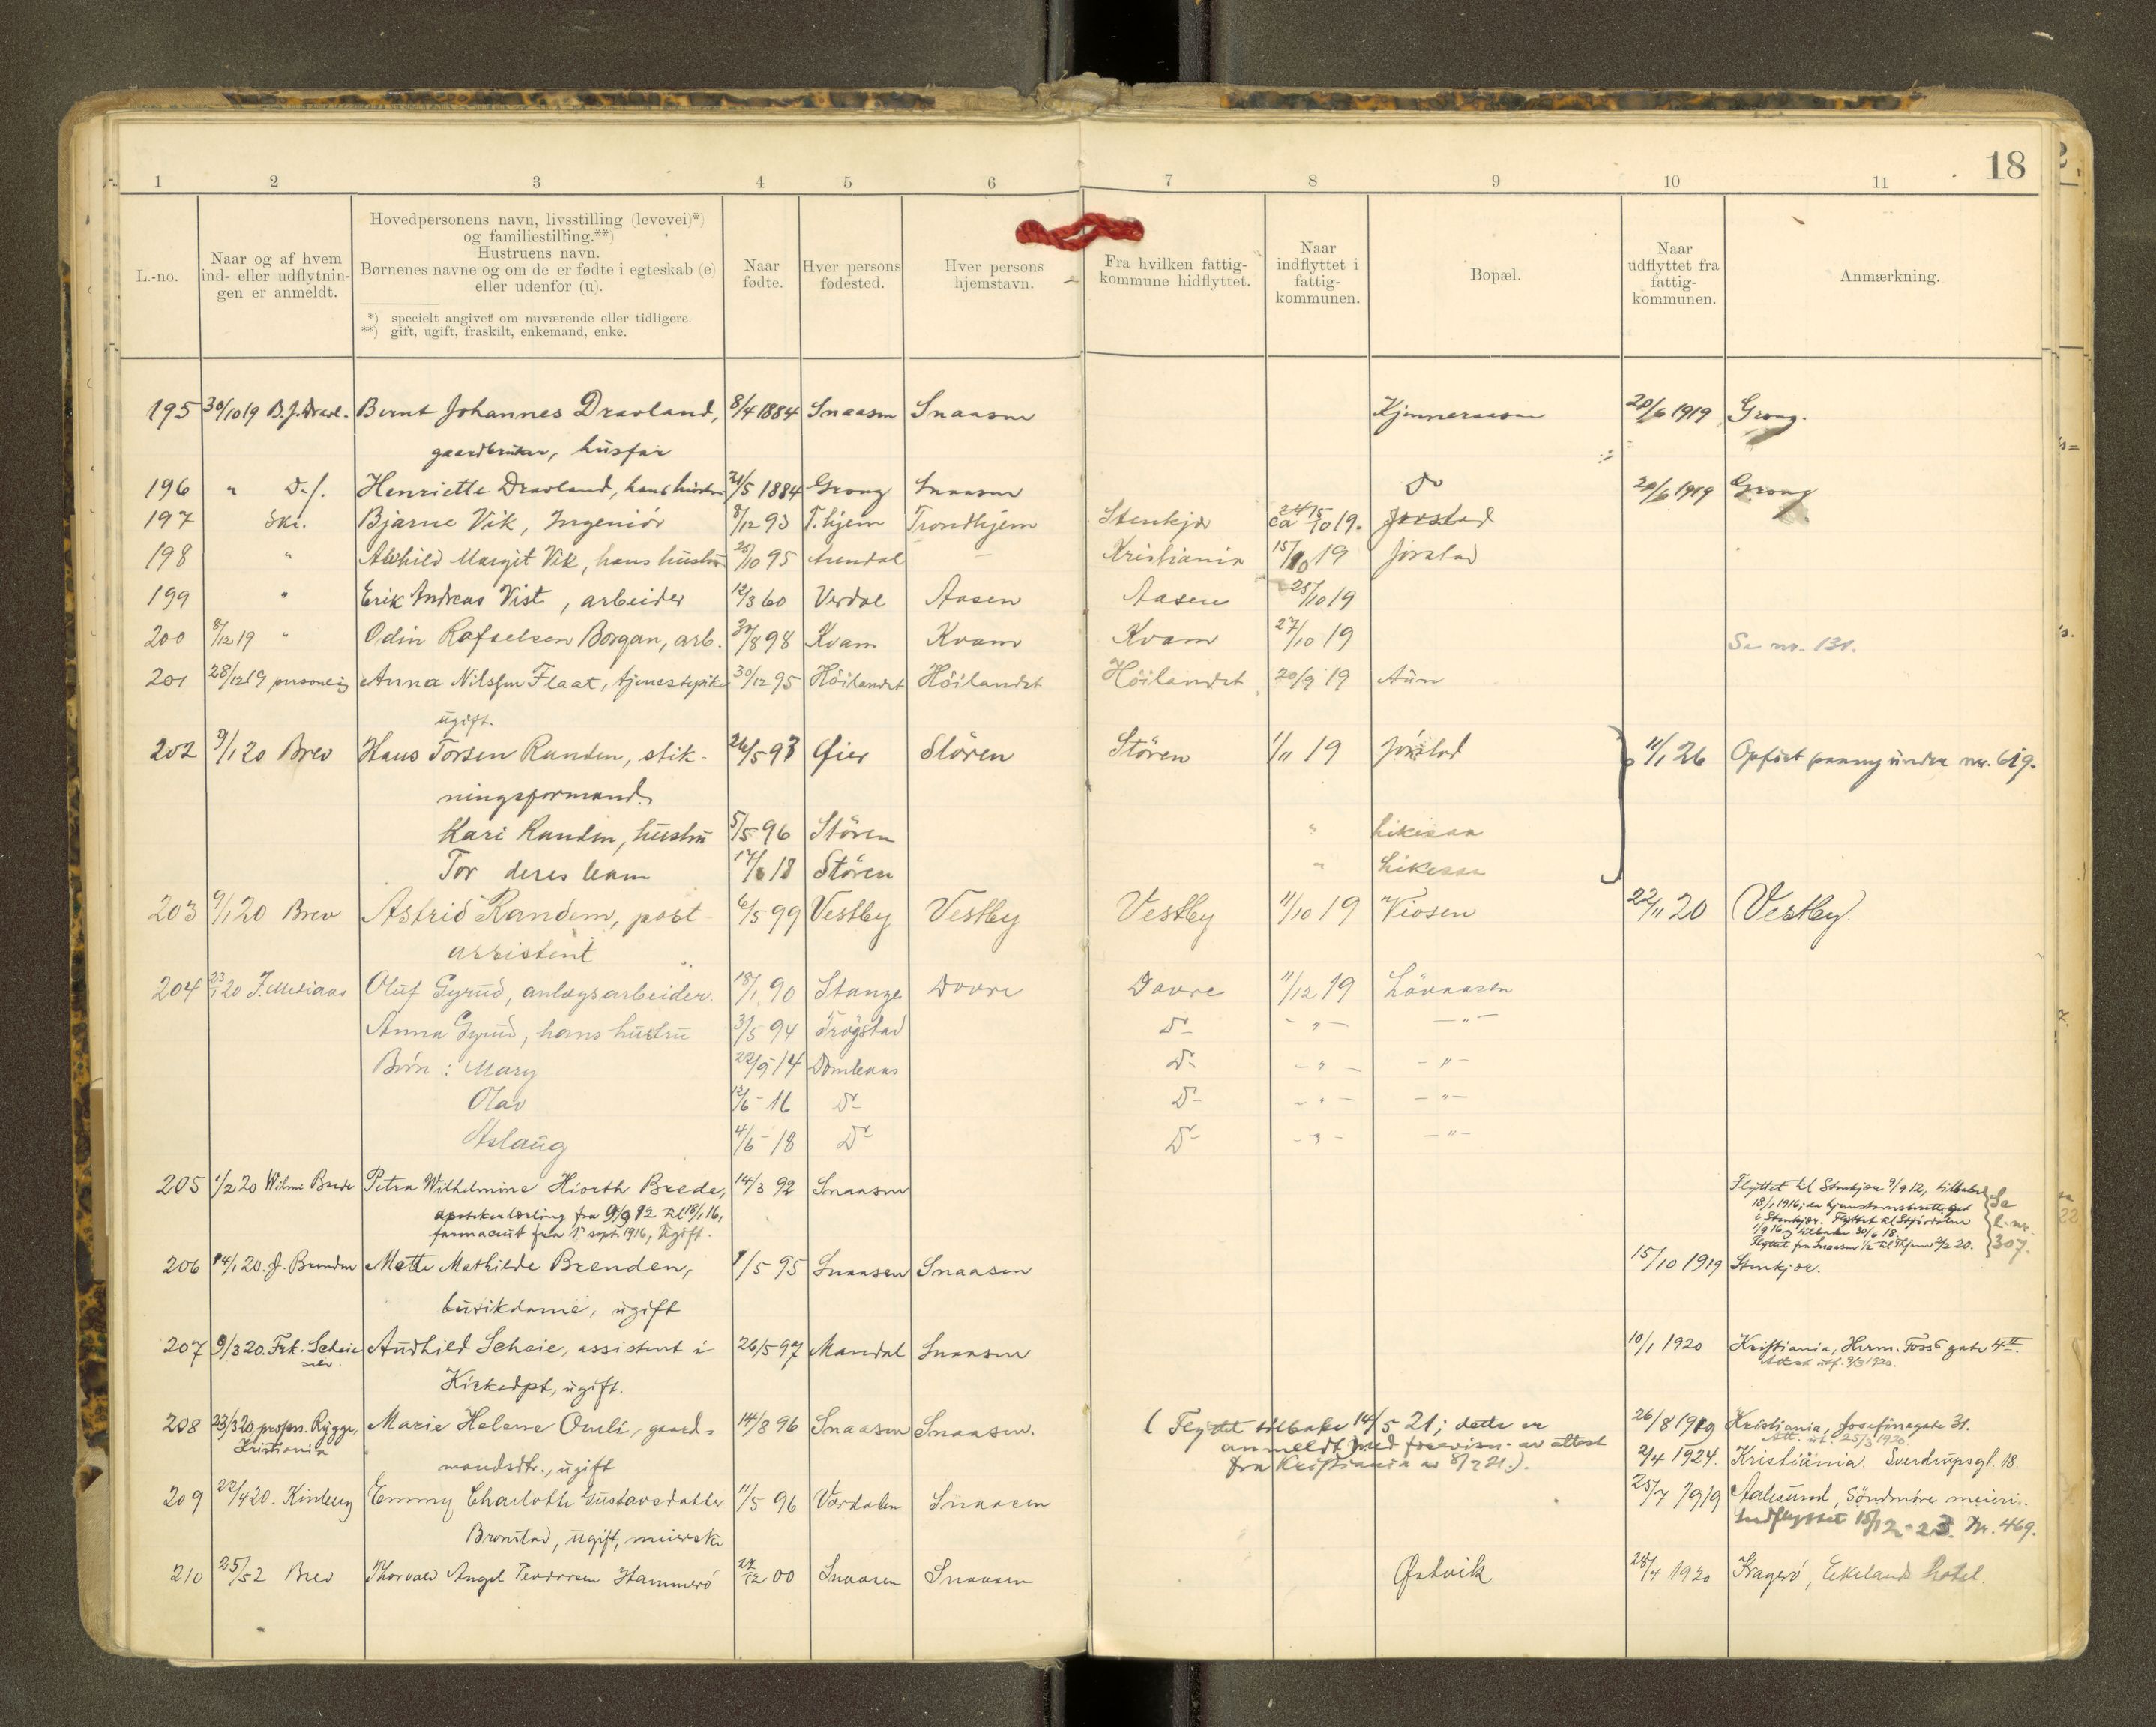 18
1 2 3 4 5 6 7 8 9 10 11
L.-no.
Naar og af hvem
ind- eller udflytnin-
gen er anmeldt.
Hovedpersonens navn, livsstilling (levevei)*)
og familiestilling.**)
Hustruens navn.
Børnenes navne og om de er fødte i egteskab (e)
eller udenfor (u).
*) specielt angivet om nuværende eller tidligere.
**) gift, ugift, fraskilt, enkemand, enke.
Naar
fødte.
Hver persons
fødested.
Hver persons
hjemstavn.
Fra hvilken fattig-
kommune hidflyttet.
Naar
indflyttet i
fattig-
kommunen.
Bopæl.
Naar
udflyttet fra
fattig-
kommunen.
Anmærkning.
195 30/10 19 B.J. Bernt Johannes Dravland, 8/4 1884 Snaasen Snaasen 20/6 1919 Grong.
gaardbruker, husfar
196 " D.s. Henriette Dravland, hans hustru 21/5 1884 Grong Snaasen Do 20/6 1919 Grong
197 Ski. Bjarne Vik, Ingeniör 8/12 93 T.hjem Trondhjem Stenkjær ca 10 19. Jørstad
198 " Margit Vik, hans hustru 25/10 95 Arendal Kristiania 15/10 19 Jørstad
199 " Erik Andreas Vist, arbeider 12/3 60 Verdal Aasen Aasen 25/10 19
200 8/12 19 " Odin Rafaelsen Borgan, arb. 8 98 Kvam Kvam Kvam 27/10 19 Se nr. 131.
201 28/12 19 personlig Anna Nilssen Flaat, tjenestepike 30/12 95 Höilandet Höilandet Höilandet 20/9 19
ugift.
202 9/1 20 Brev Hans Torsen Randen, stik- 26/5 93 Øier Stören Stören 1/11 19 Jørstad 11/1 26 Opført paany under nr. 619.
ningsformand.
Kari Randen, hustru 5/5 96 Stören "
Tor deres barn 18 Stören "
203 9/1 20 Brev Astrid Randem, post- 6/5 99 Vestby Vestby Vestby 11/10 19 Viosen 22/11 20 Vestby.
assistent
204 23/1 20 J. Mediaas Oluf Gyrud, anlægsarbeider. 18/1 90 Stange Dovre Dovre 11/12 19 Lövaasen
Anna Gyrud, hans hustru 3/5 94 Trögstad Do - " - - " -
Börn: Mary 22/9 14 Dombaas Do - " - - " -
Olav 12/6 - 16 Do Do - " - - " -
Aslaug 4/6 - 18 Do Do - " - - " -
205 1/2 20 Wilm. Brede Petra Wilhelmine Hiorth Brede, 14/3 92 Snaasen Flyttet til Stenkjær 9/9 12, tilbake
apotekerlærling fra 9/9 12 til 18/1 16, 18/1 1916; da hjemstavnsrett
farmaceut fra 1 sept. 1916, Ugift. i Stenkjær. Flyttet til Stjørdalen
1/9 16 og tilbake 30/6 18.
Flyttet fra Snaasen 1/2 til Thjem 2/2 20.
Se
l.nr.
307.
206 14/1 20. J. Brenden Mette Mathilde Brenden, 1/5 95 Snaasen Snaasen 15/10 1919 Stenkjær.
butikdame, ugift
207 9/3 20. Frk. Scheie Audhild Scheie, assistent i 26/5 97 Mandal Snaasen 10/1 1920 Kristiania, Herm. Foss gate 4 II.
selv. Attest utf. 9/3 1920.
Kirkedpt, ugift.
208 23/3 20 profess. Rygge, Marie Helene Omli, gaard- 14/8 96 Snaasen Snaasen. ( Flyttet tilbake 14/5 21; dette er 26/8 1919 Kristiania, Josefinegate 31.
Kristiania anmeldt med forevisn. av attest Att. utf. 25/3 1920.
mandsdtr., ugift fra Kristiania av 8/7 21.). 2/4 1924. Kristiania. Sverdrupsgt. 18.
209 22/4 20. Kinberg Emmy Charlotte Gustavsdatter 11/5 96 Værdalen Snaasen 25/7 1919 Aalesund, Söndmöre meieri.
Bronstad, ugift, meierske Indflyttet 15/12 - 23. Nr. 469.
210 25/5 2 Brev Thorvald Angel Teodorsen Hammerö 12 00 Snaasen Snaasen Østvik 28/4 1920 Kragerö, Ekeland hotel.